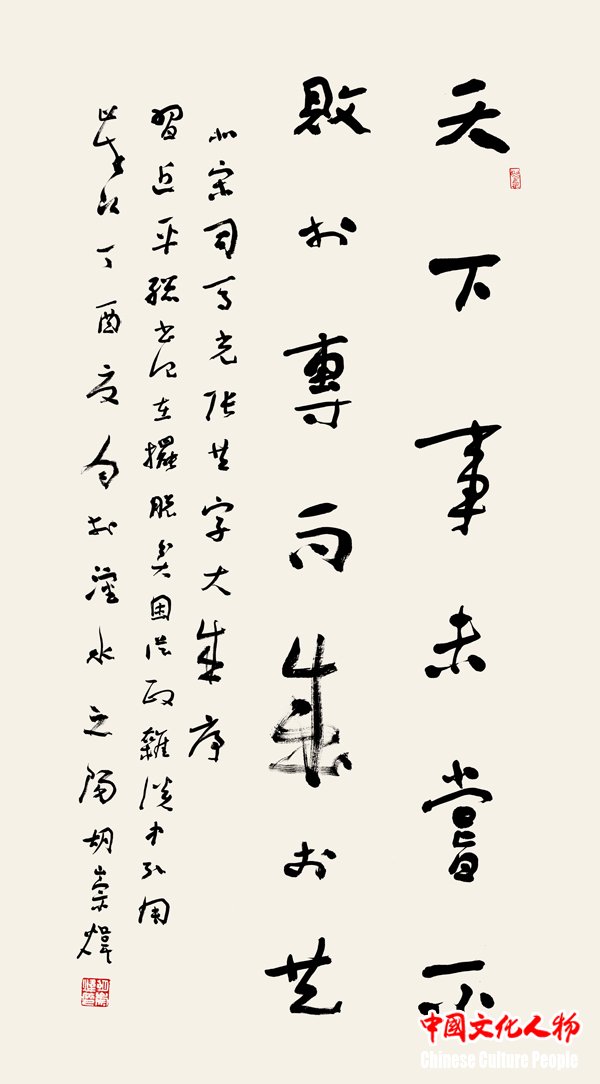 天下事未嘗不
敗於專而成於共
北宋司馬光張共字大成序
習近平總書記在擺脫貧困從政雜談中引用
歲次丁酉夏於瀋水之陽胡崇煒
中國文化人物
Chinese Culture People